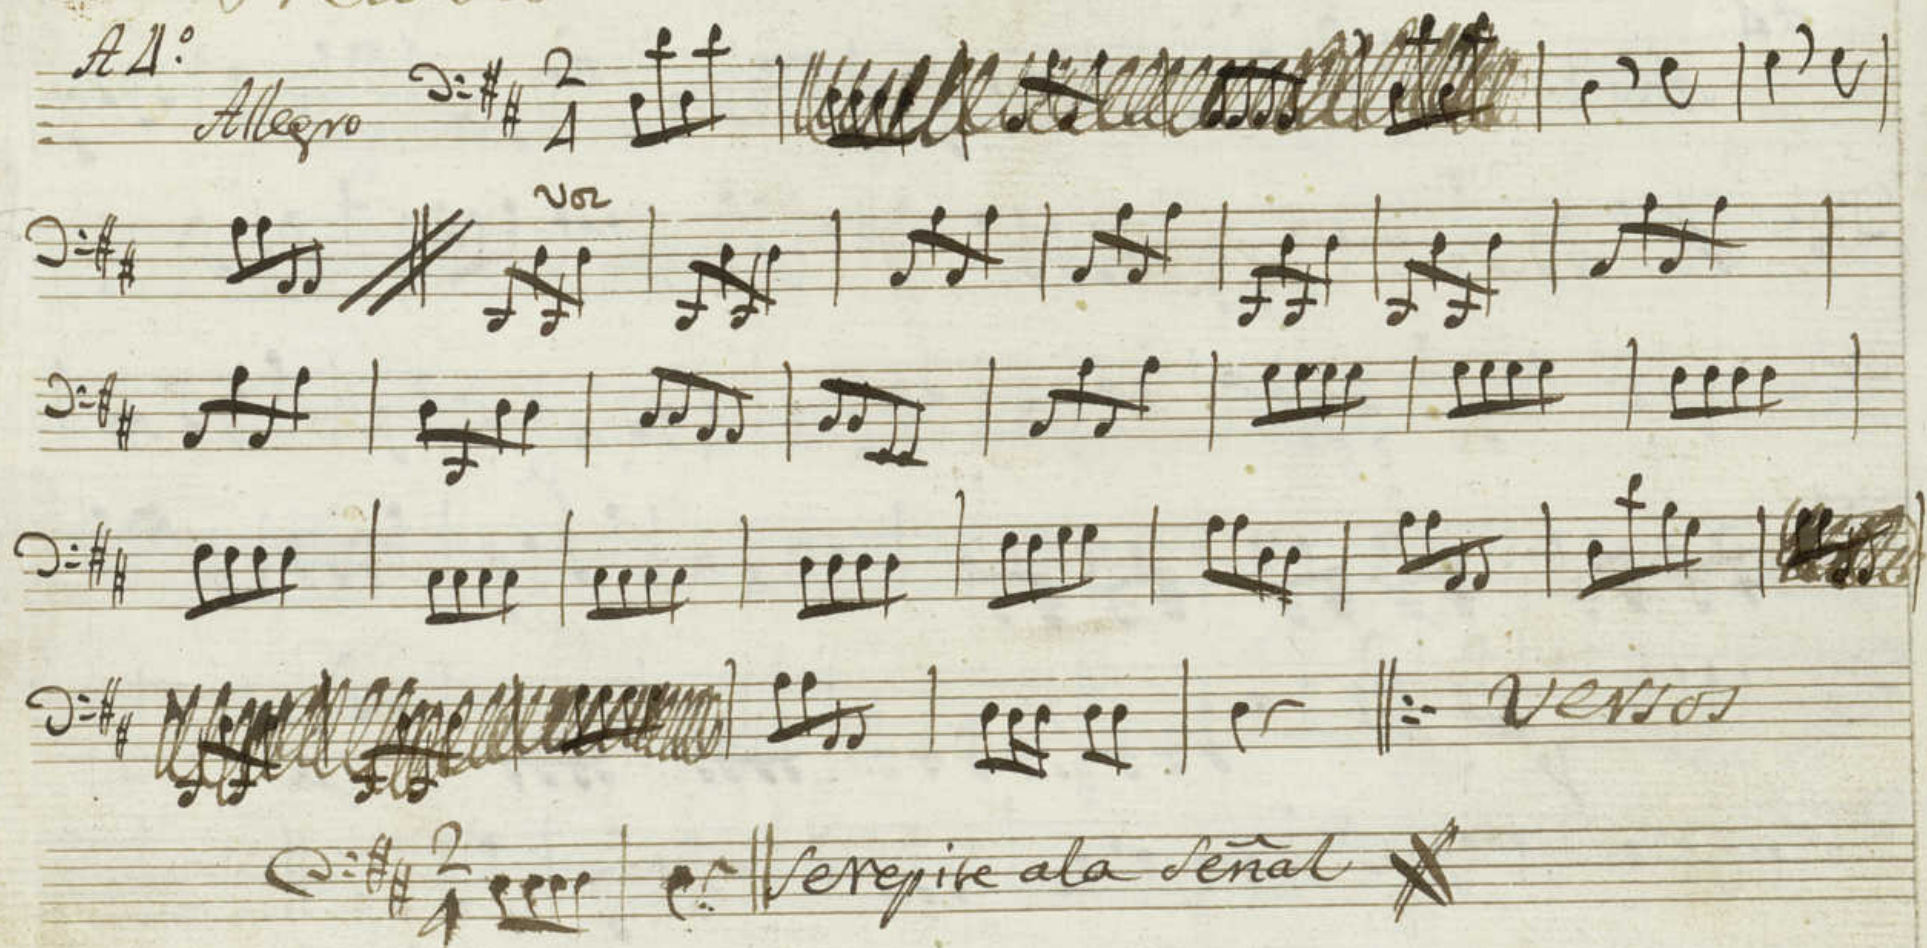 A 4º
Allegro
2
4
voz
Versos
2
4
Se repite a la Señal